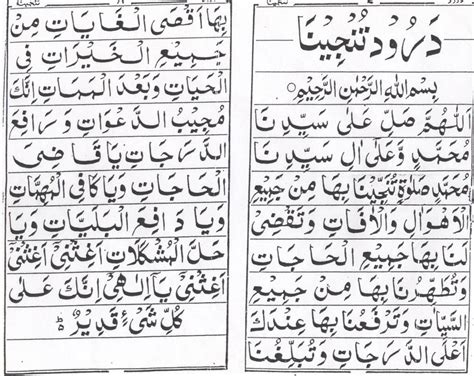 دَرُود تُنَجِّينَا
بِسْمِ اللهِ الرَّحْمٰنِ الرَّحِيْمِ
اَللّٰهُمَّ صَلِّ عَلٰى سَيِّدِ نَا
مُحَمَّدٍ وَّعَلٰى اٰلِ سَيِّدِ نَا
مُحَمَّدٍ صَلٰوةً تُنَجِّيْنَا بِهَا مِنْ جَمِيْعِ
الْاَهْوَالِ وَالْاٰفَاتِ وَتَقْضِىْ
لَنَا بِهَا جَمِيْعَ الْحَاجَاتِ
وَتُطَهِّرُنَا بِهَا مِنْ جَمِيْعِ
السَّيِّاٰتِ وَتَرْفَعُنَا بِهَا عِنْدَكَ
اَعْلَى الدَّرَجَاتِ وَتُبَلِّغُنَا
بِهَا اَقْصَى الْغَايَاتِ مِنْ
جَمِيْعِ الْخَيْرَاتِ فِى
الْحَيَاتِ وَبَعْدَ الْمَمَاتِ اِنَّكَ
مُجِيْبُ الدَّعْوَاتِ وَ رَافِعُ
الدَّرَجَاتِ يَا قَاضِىَ
الْحَاجَاتِ وَيَا كَافِىَ الْمُهِمَّاتِ
وَيَا دَافِعَ الْبَلِيَّاتِ وَيَا
حَلَّ الْمُشْكِلَاتِ اَغِثْنِىْ اَغِثْنِىْ
اَغِثْنِىْ يَآ اِلٰهِىْ اِنَّكَ عَلٰى
كُلِّ شَىْءٍ قَدِيْرٌ ۝